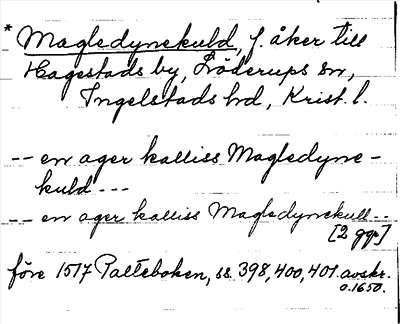 * Magledynekuld, f. åker till
Hagestads by, Löderups sn,
Ingelstads hd, Krist. l.
-- en ager kalliss Magledyne-
kuld ---
-- en ager kalliss Magledynekull --
[2 ggr]
före 1517 Palteboken, ss. 398, 400, 401. avskr.
o. 1650.